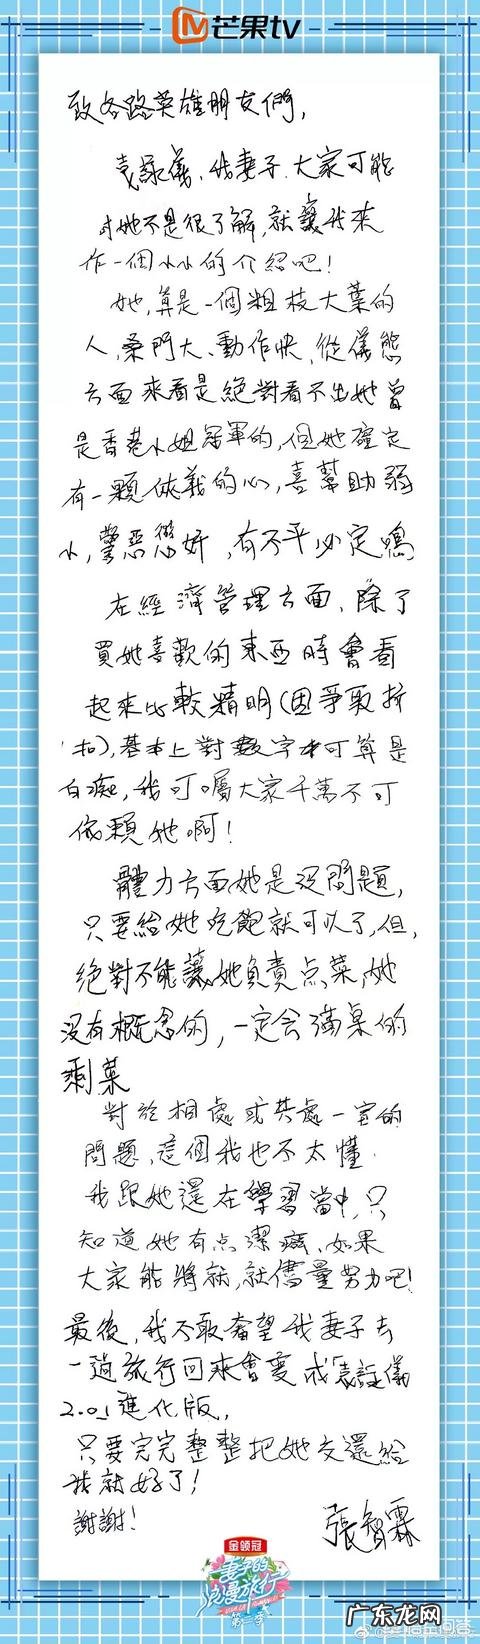 芒果tv
致各路英雄朋友們，
袁詠儀、我妻子、大家可能
对她不是很了解，就讓我來
作一個小小的介紹吧！
她，算是一個粗枝大葉的
人，桑門大、動作快，從儀態
方面來看是絕對看不出她曾
是香港小姐冠軍的，但她確定
有一顆俠義的心，喜幫助弱
小，警惡懲奸，有不平必定鳴
在經濟管理方面，除了
買她喜歡的東西時會看
起來比較精明(因爭取折
扣)，基本上對數字才可算是
白痴，我叮囑大家千萬不可
依賴她啊！
體力方面她是没問題，
只要給她吃飽就可以了，但，
絕對不能讓她負責点菜，她
没有概念的，一定会滿桌的
剩菜
對於相處或共處一室的
問題，這個我也不太懂.
我跟她還在學習當中，只
知道她有点潔癖、如果
大家能將就，就儘量努力吧！
最後，我不敢奢望我妻子去
一趟旅行回來會變成袁詠儀
2.01進化版，
只要完完整整把她交還給
我就好了！
謝謝！
張智霖
金领冠
妻子的
浪漫旅行
第二季
广东龙网